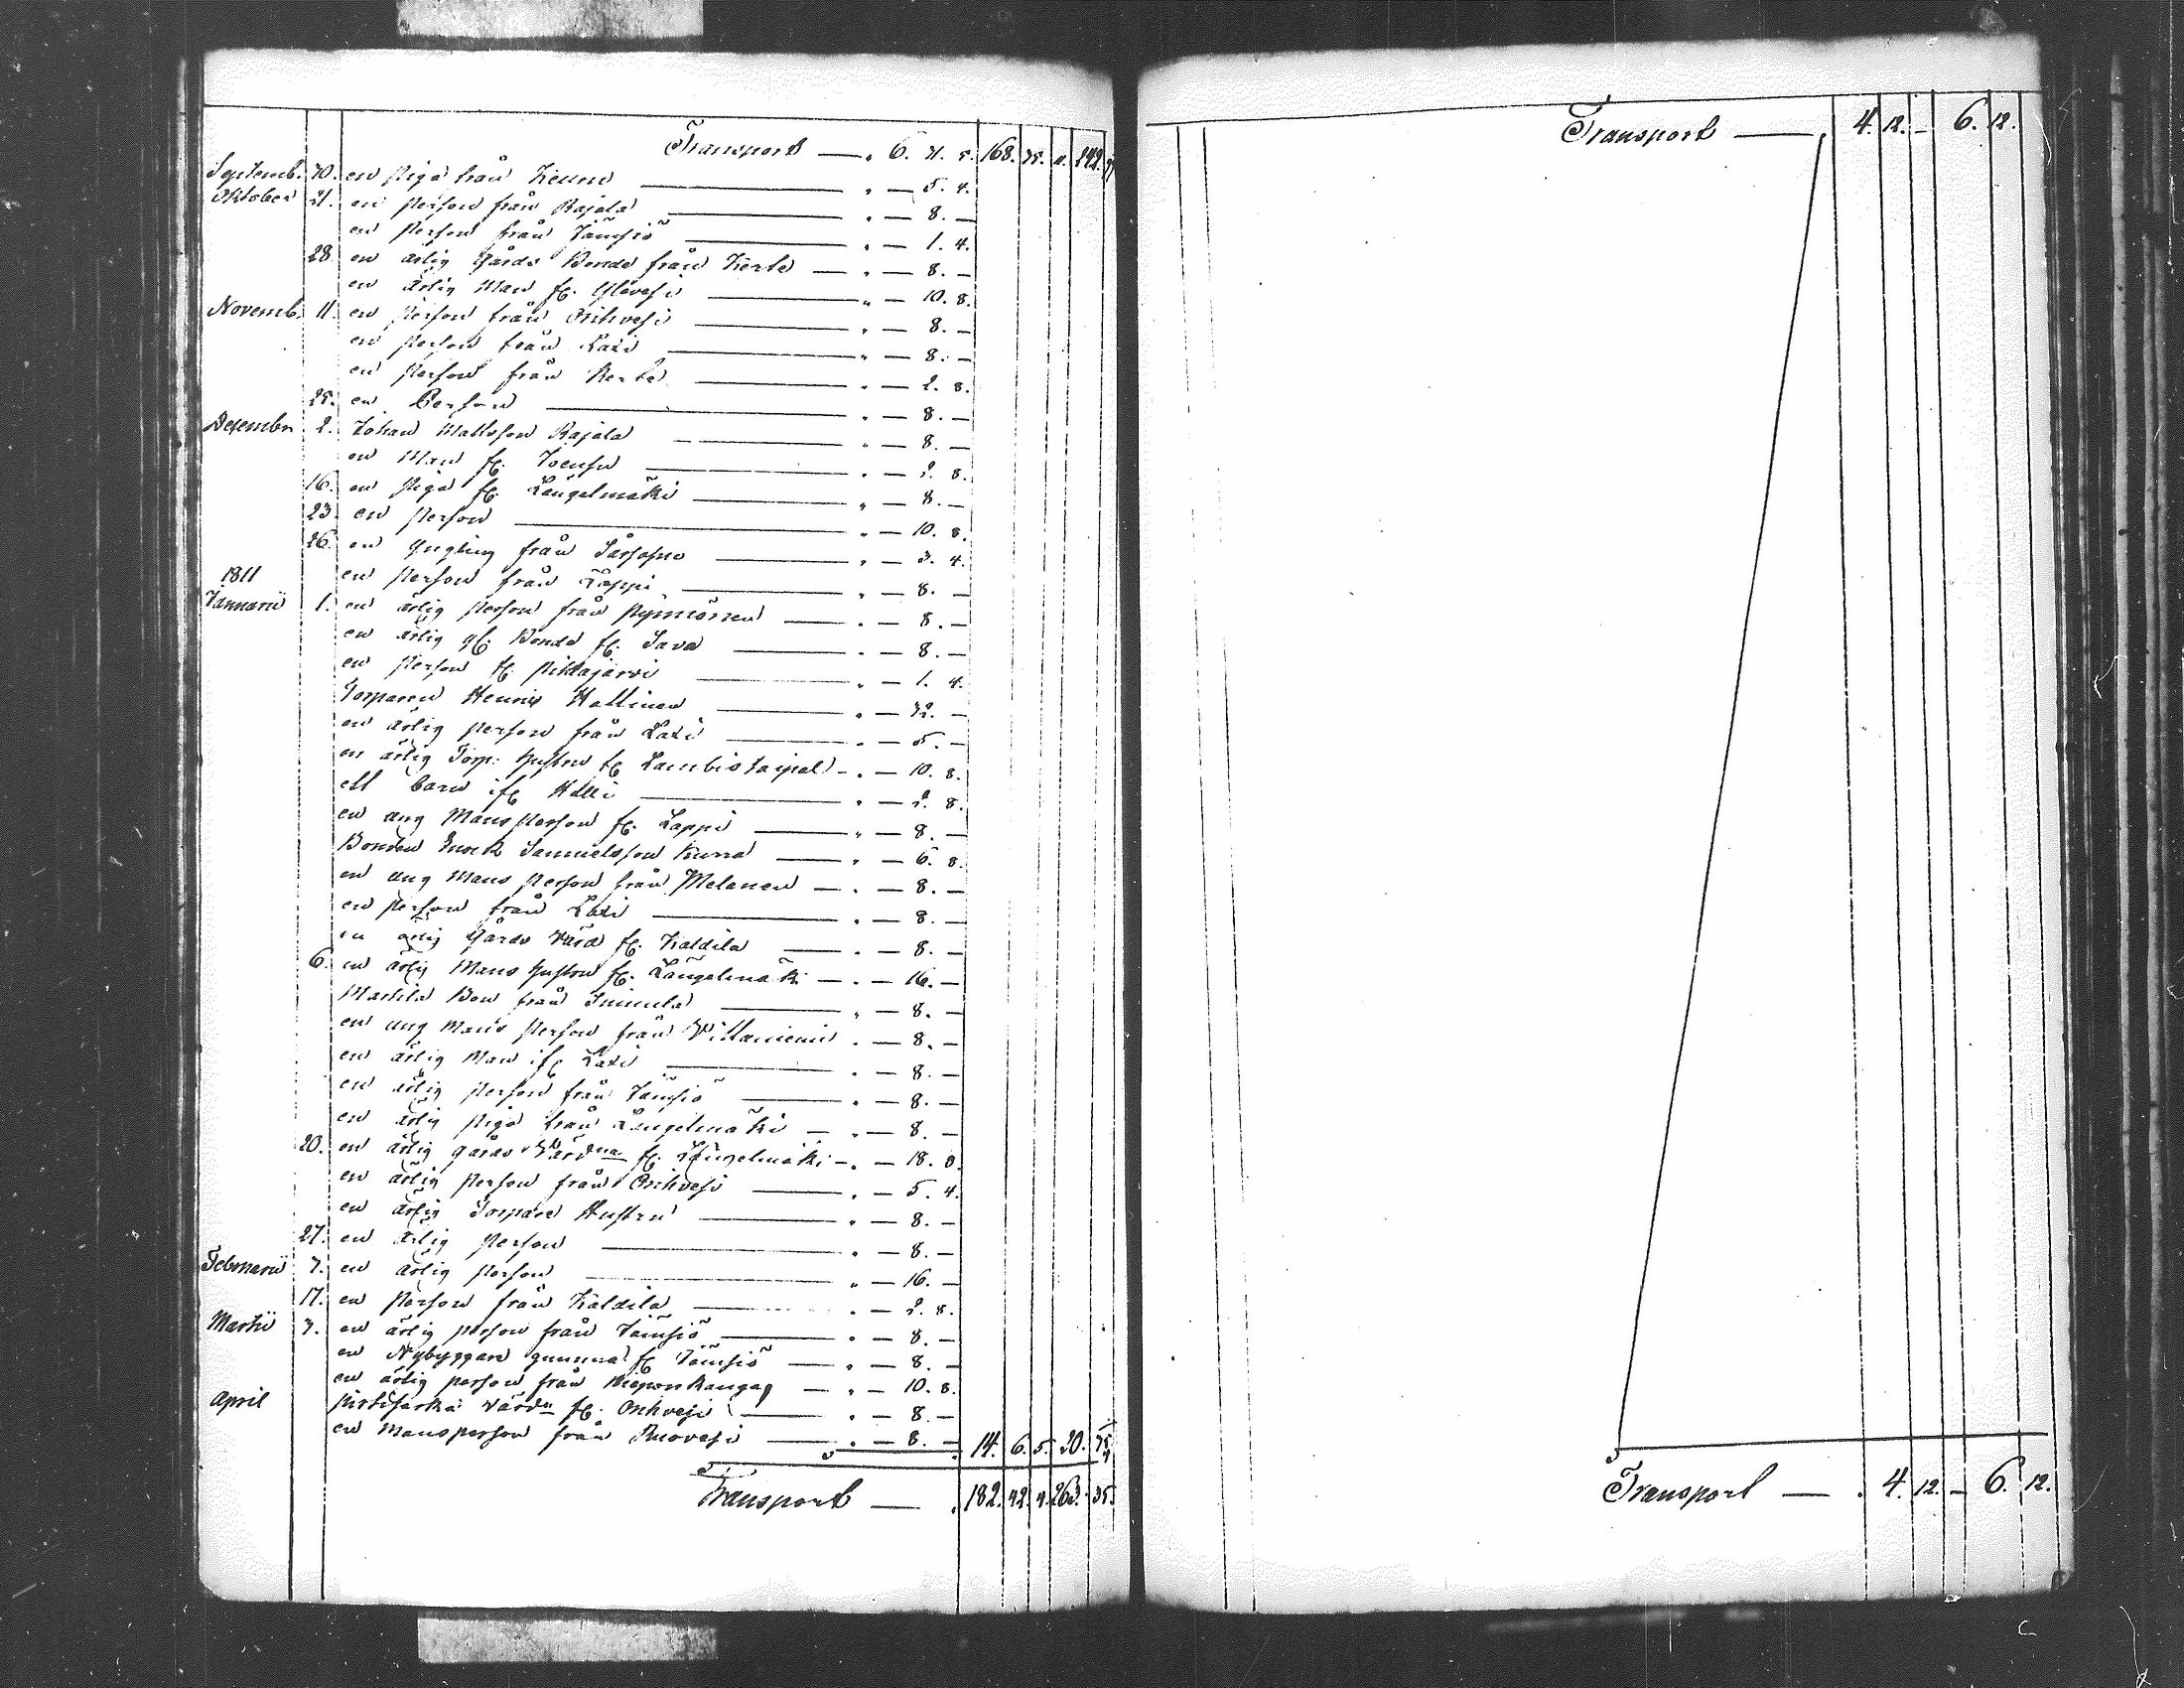 Transport — . 6. 168. 242.
Septemb. 30. en piga från — . — 5. 4.
Oktober 21. en person från Rajala — . — 8. —
en person från Jämsiö — . — 1. 4.
28. en ärlig Gårds Bonde från Kerte — . — 8. —
en ärlig Man fr. Ylövesi — „ — 10. 8.
Novemb. 11. en person från Orihvesi — „ — 8. —
en person från Laxi — „ — 8. —
en person från Kerte — . — 2. 8.
25. en Person — . — 8. —
Desember 2. Johan Mattsson Rajala — „ — 8. —
en Man fr. — . — 2. 8.
16. en piga fr. Längelmäki — „ — 8. —
23. en person — „ — 10. 8.
26. en yngling från — . — 3. 4.
en person från Lappi — „ — 8. —
1811
Januarii 1. en ärlig person från — . — 8. —
en ärlig gl. Bonde fr. Sava — . — 8. —
en person fr. Pitkäjärvi — „ — 1. 4.
Torparen Henric Hallinen — . — 32. —
en ärlig person från Laxi — . — 5. —
en ärlig Torp. hustru fr. Lambistaipal — . — 10. 8.
ett barn ifr. Halli — . — 2. 8.
en ung Mans person fr. Lappi — „ — 8. —
Bonden Enock Samuelsson — . — 6. 8.
en ung Mans person från Melanen — . — 8. —
en person från Laxi — . — 8. —
en ärlig Gårds Värd fr. Kaldila — . — 8. —
6. en ärlig Mans hustru fr. Längelmäki — . — 16. —
Mattila Bon från Immula — „ — 8. —
en ung Mans person från Villaniemi . — 8. —
en ärlig Man ifr. Laxi — . — 8. —
en ärlig person från Jämsiö — . — 8. —
en ärlig piga från Längelmäki — . — 8. —
20. en ärlig gårds Värdina fr. Längelmäki — . — 18. 8.
en ärlig person från Orihvesi — . — 5. 4.
en ärlig Torpare Hustru — . — 8. —
27. en ärlig person — . — 8. —
Februarii 3. en ärlig person — „ — 16. —
17. en person från Kaldila — . — 2. 8.
Martii 3. en ärlig person från Jämsiö — . — 8. —
en Nybyggare gumma fr. Jämsiö — . — 8. —
en ärlig person från — . — 10. 8.
April Värdn fr. Orihvesi — . — 8. —
en mansperson från Ruovesi — . — 8. — 14. 6. 5. 20. 75
Transport — . 182. 42. 4. 263. 35.
Transport — . 4. 12. — 6. 12.
Transport — . 4. 12. — 6. 12.